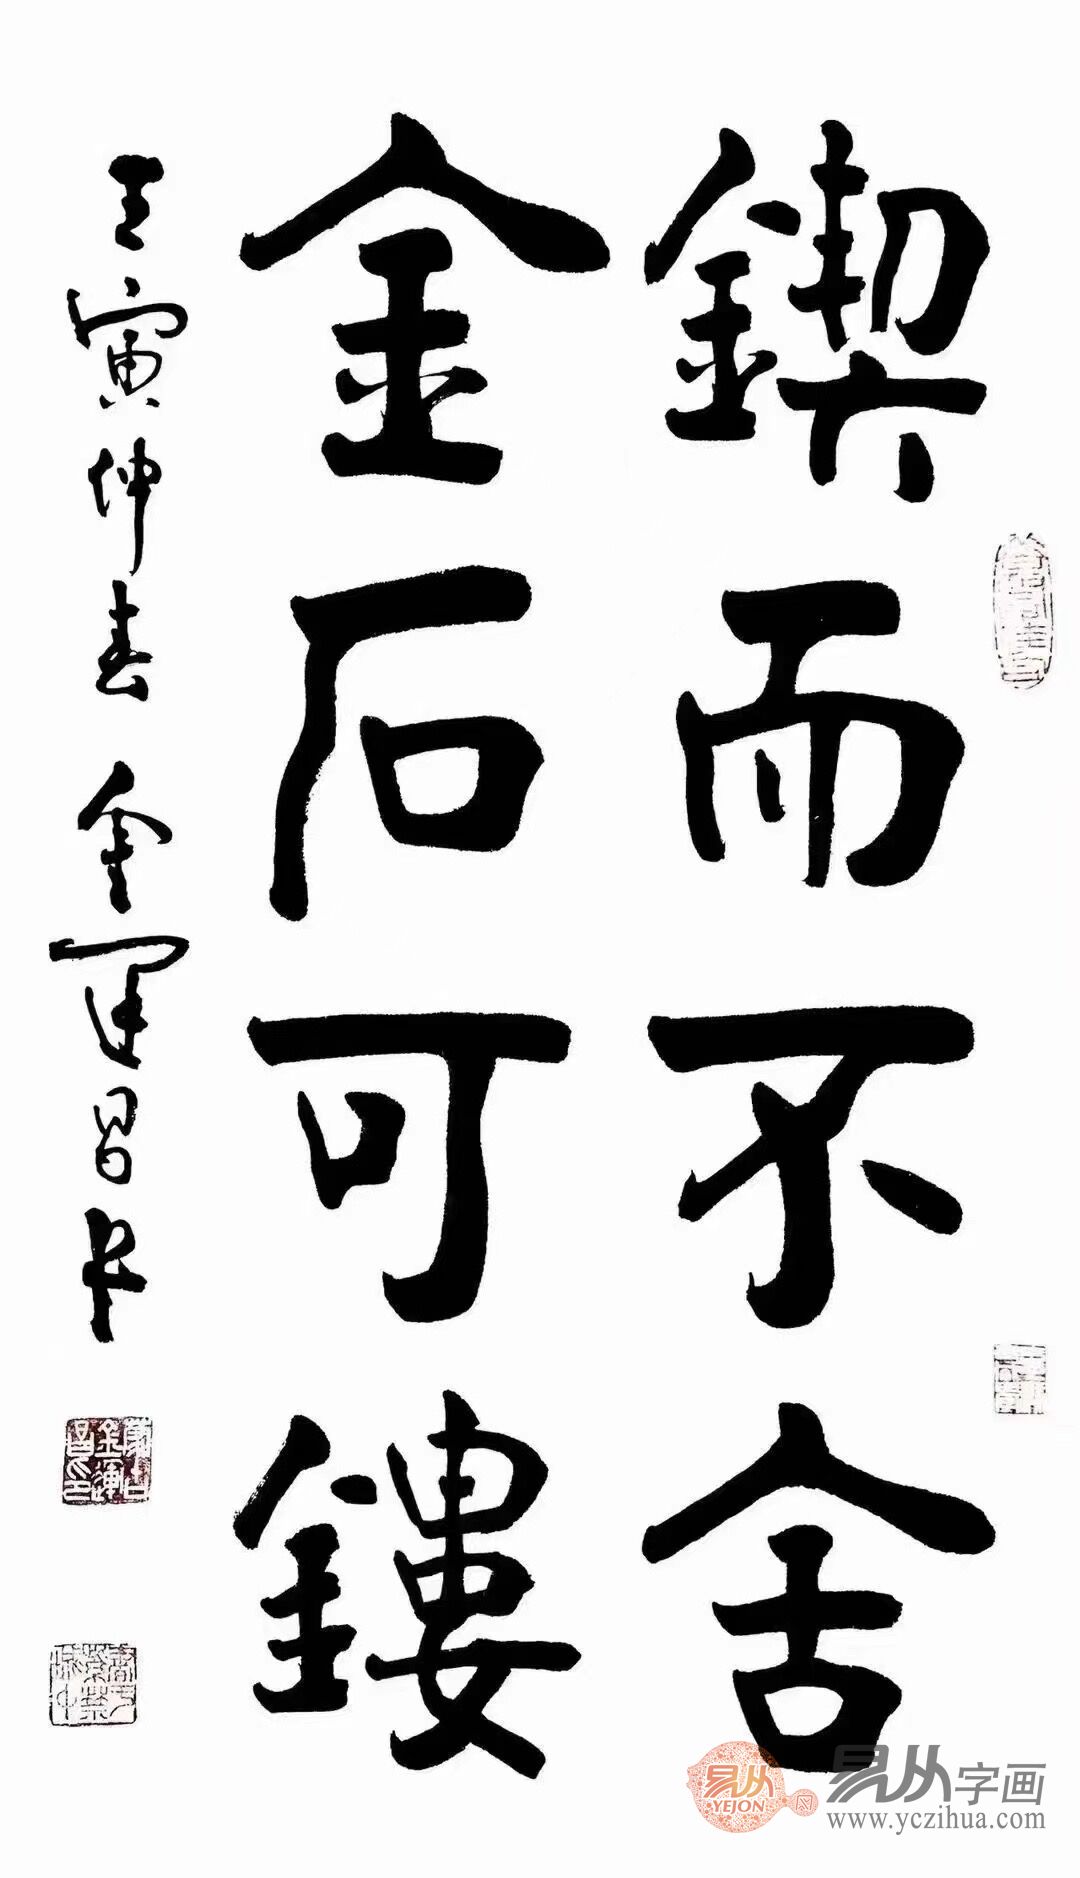 鍥而不舍
金石可鏤
壬寅仲春 金運昌书
易从
YEJON
易从字画
www.yczihua.com